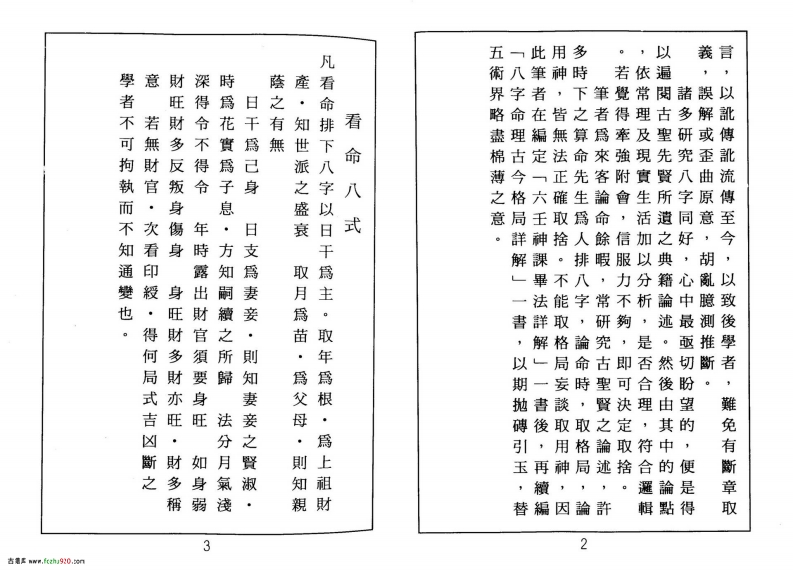 言，以訛傳訛流傳至今，以致後學者，難免有斷章取
義，誤解或歪曲原意，胡亂臆測推斷。
諸多研究八字同好，心中最亟切盼望的，便是得
以遍閱古聖先賢所遺之典籍論述。然後由其中的論點
，依常理及現實生活加以分析，是否合理，符合邏輯
。若覺得牽強附會，信服力不夠，即可決定取捨。
筆者為來客論命餘暇，常研究古聖賢之論述，許
多時下之算命先生為人排八字，論命時，取格局，論
用神，皆無法正確取捨。不能取格局妄談取用神，因
此筆者在編定「六壬神課畢法詳解」一書後，再續編
「八字命理古今格局詳解」一書，以期拋磚引玉，替
五術界略盡棉薄之意。
2
看命八式
凡看命排下八字以日干爲主。取年爲根·爲上祖財
產·知世派之盛衰　取月爲苗·爲父母·則知親
蔭之有無
日干爲己身　日支爲妻妾·則知妻妾之賢淑·
時爲花實爲子息·方知嗣續之所歸　法分月氣淺
深得令不得令　年時露出財官須要身旺　如身弱
財旺財多反叛身傷身　身旺財多財亦旺·財多稱
意　若無財官·次看印綬·得何局式吉凶斷之
學者不可拘執而不知通變也。
3
www.fozhu920.com